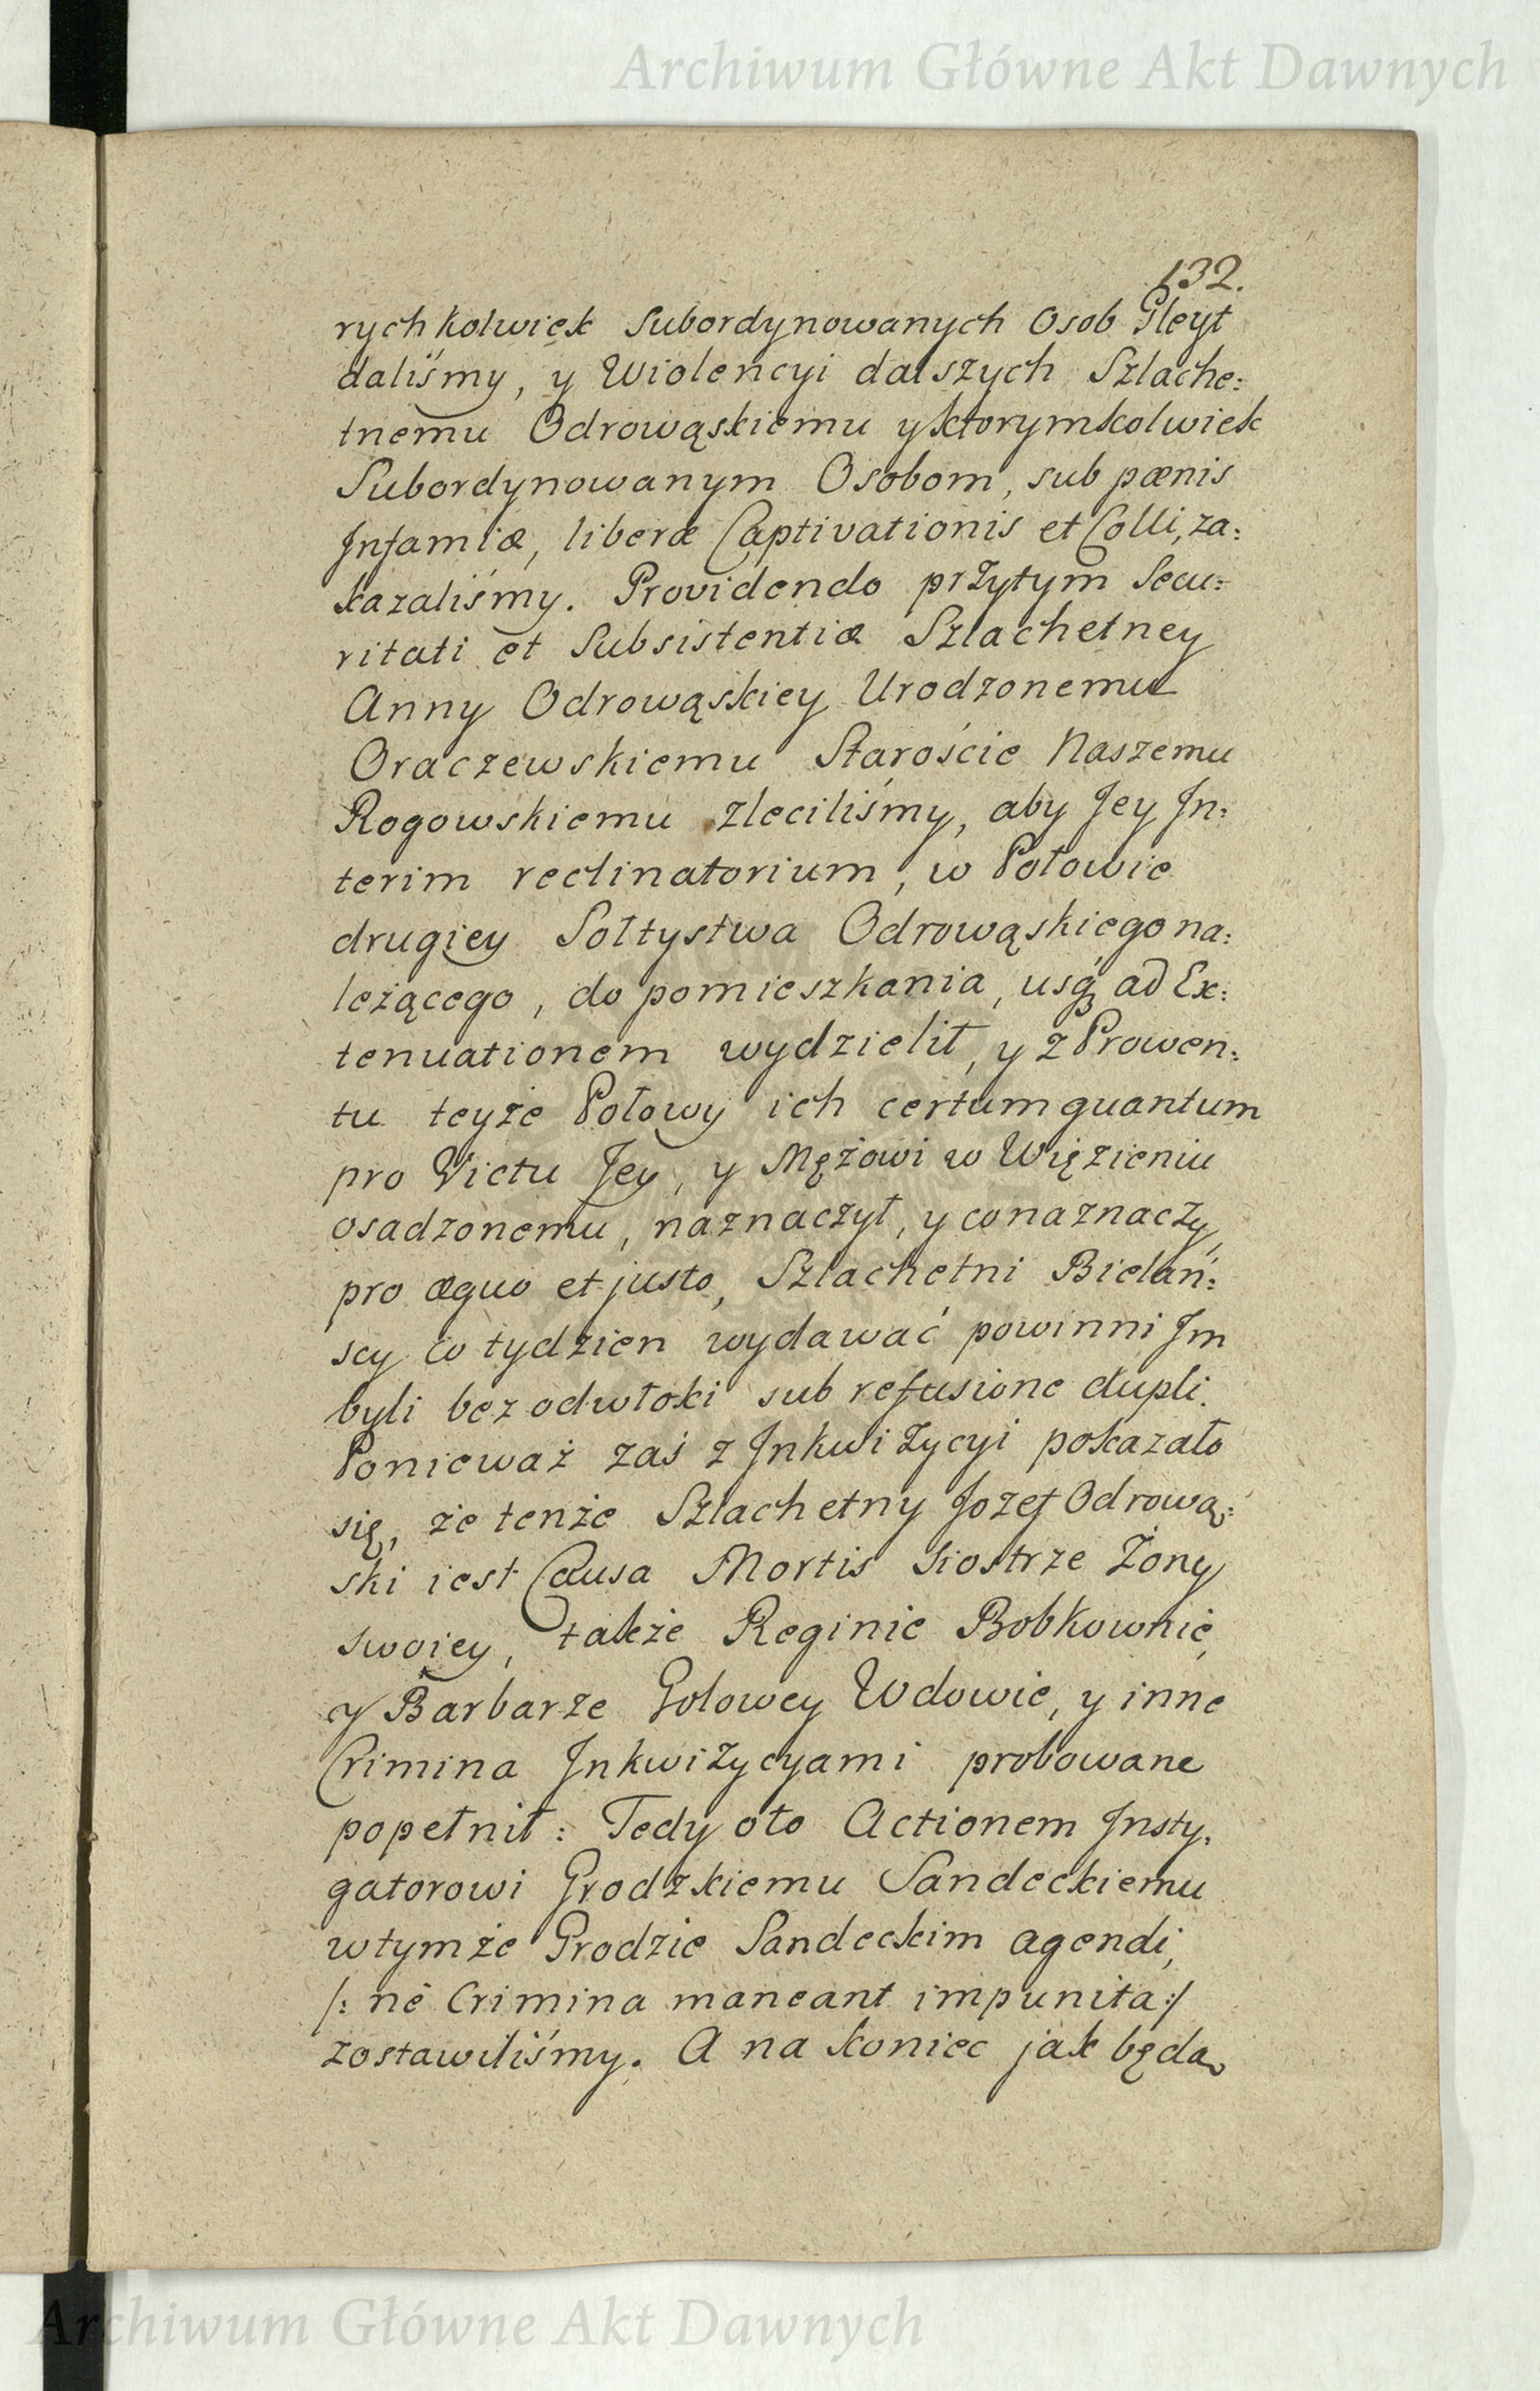 Archiwum Główne Akt Dawnych
132.
rychkolwiek Subordynowanych Osob Gleyt
daliśmy, y Wiolencyi dalszych Szlache:
tnemu Odrowąskiemu y ktorymkolwiek
Subordynowanym Osobom, sub pœnis
Infamiæ, liberæ Captivationis et Colli, za:
kazaliśmy. Providendo przytym Secu:
ritati et Subsistentiæ Szlachetney
Anny Odrowąskiey Urodzonemu
Oraczewskiemu Starościе Naszemu
Rogowskiemu zleciliśmy, aby Jey In:
terim reclinatorium, w Połowie
drugiey Sołtystwa Odrowąskiego na:
leżącego, do pomieszkania, usq₃ ad Ex:
tenuationem wydzielił, y z Prowen:
tu teyże Połowy ich certum quantum
pro Victu Jey, y Mężowi w Więzieniu
osadzonemu, naznaczył, y co naznaczy,
pro æquo et justo, Szlachetni Bielań:
scy co tydzien wydawać powinni Im
byli bez odwłoki sub refusione dupli.
Ponieważ zaś z Inkwizycyi pokazało
się, że tenże Szlachetny Jozef Odrową:
ski iest Causa Mortis Siostrze Żony
swoiey, także Reginie Bobkownie,
y Barbarze Golowey Wdowie, y inne
Crimina Inkwizycyami probowane
popełnił: Tedy oto Actionem Insty:
gatorowi Grodzkiemu Sandeckiemu
wtymże Grodzie Sandeckim agendi,
/: ne Crimina maneant impunita :/
zostawiliśmy. A na koniec jak będą
Archiwum Główne Akt Dawnych